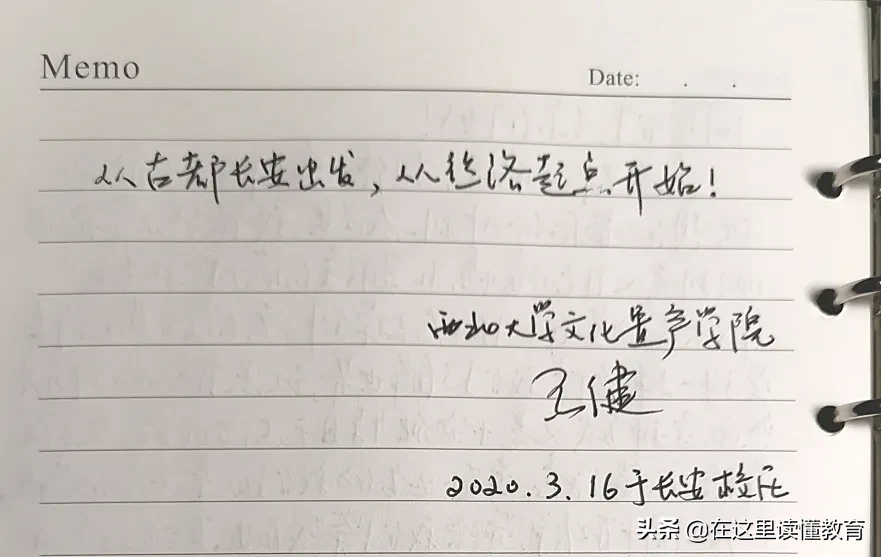 Memo
Date: . .
从古都长安出发，从丝路起点开始！
西北大学文化遗产学院
王健
2020.3.16于长安校区
头条 @在这里读懂教育